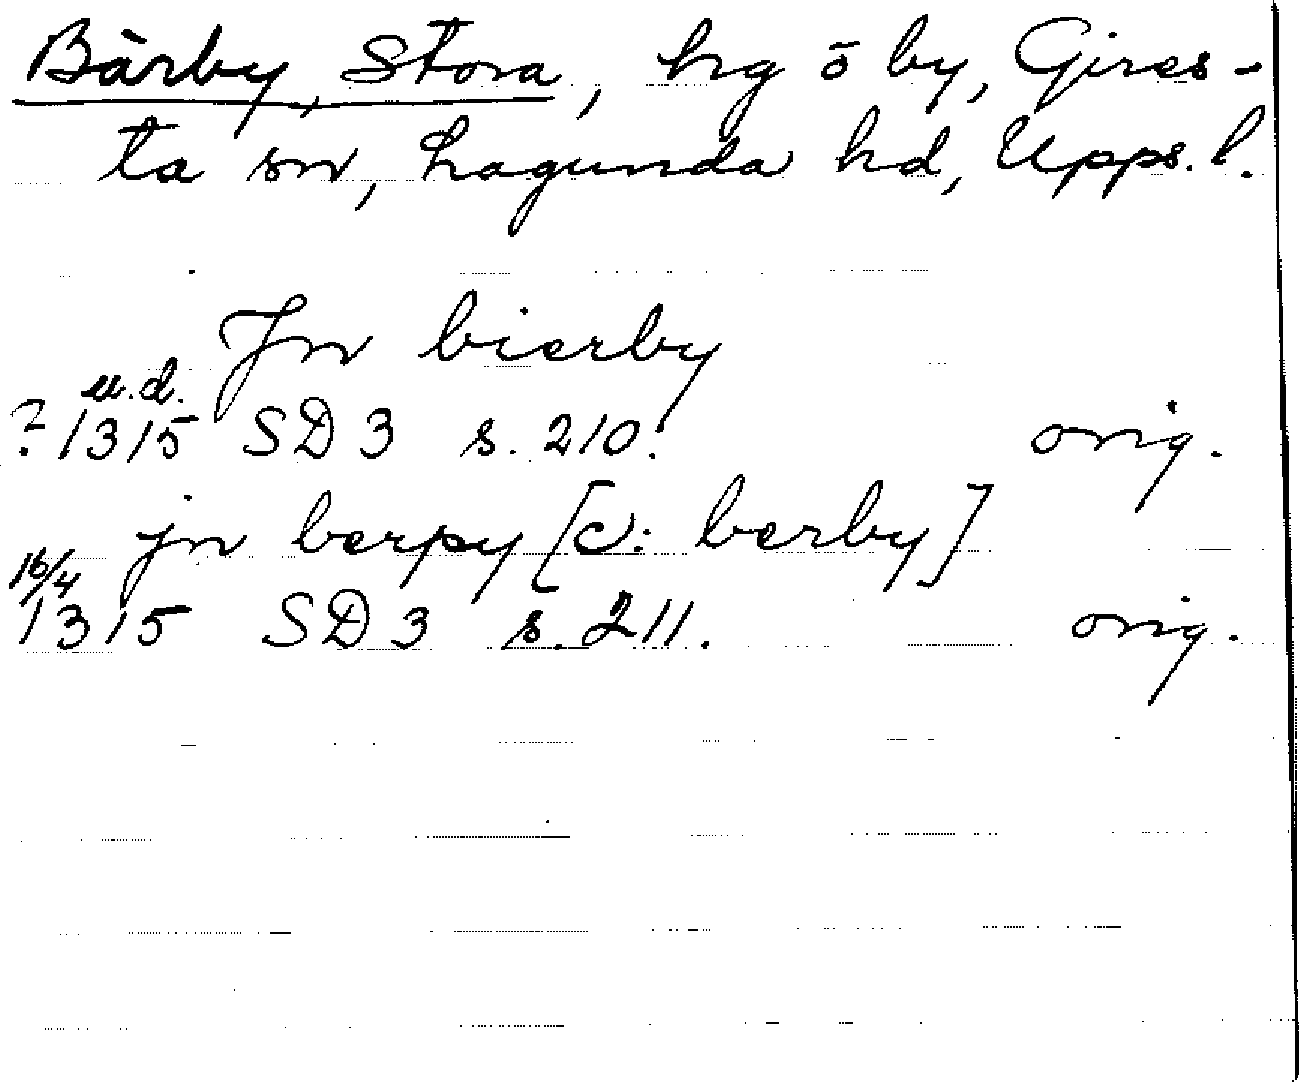 Bärby, Stora, hrg ō by, Gires-
ta sn, Lagunda hd, Upps. l.
Jn bierby
u.d.
? 1315 SD 3 s. 210. orig.
jn berpy [ɔ: berby]
16/4
1315 SD 3 s. 211. orig.